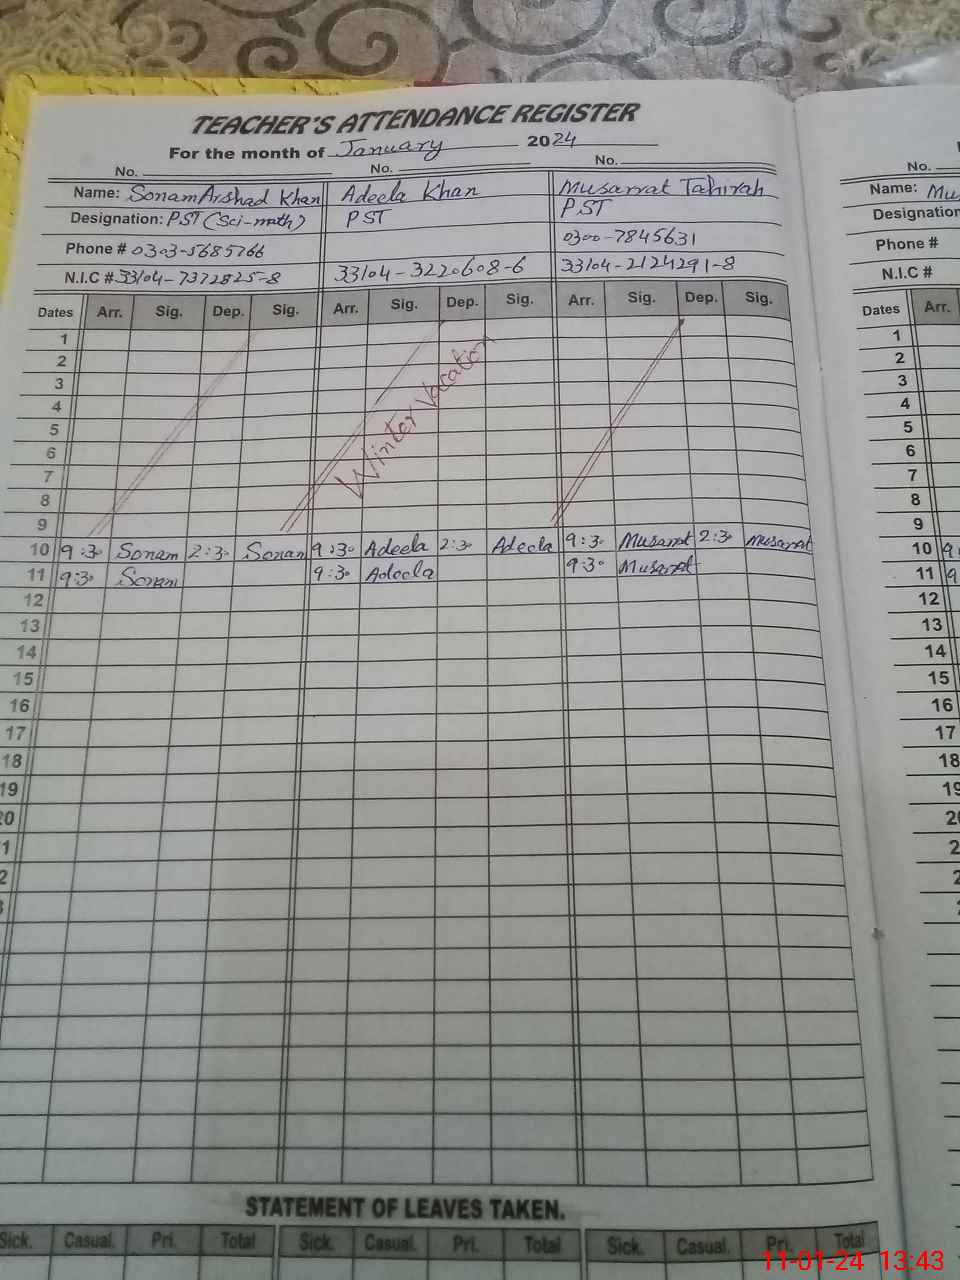 TEACHER'S ATTENDANCE REGISTER
For the month of January 2024
No. No. No.
Name: Sonam Arshad Khan Adeela Khan Musarrat Tahirah
Designation: PST (Sci-math) PST PST
Phone # 0303-5685766 0300-7845631
N.I.C # 33104-7372825-8 33104-3220608-6 33104-2124291-8
Dates Arr. Sig. Dep. Sig. Arr. Sig. Dep. Sig. Arr. Sig. Dep. Sig.
1
2
3
4
5
6
7
8
9
Winter Vacation
10 9:30 Sonam 2:30 Sonam 9:30 Adeela 2:30 Adeela 9:30 Musarrat 2:30 Musarrat
11 9:30 Sonam 9:30 Adeela 9:30 Musarrat
12
13
14
15
16
17
18
19
20
1
2
3
STATEMENT OF LEAVES TAKEN.
Sick. Casual. Pri. Total Sick. Casual. Pri. Total Sick. Casual. Pri. Total
No.
Name: Mu
Designation
Phone #
N.I.C #
Dates Arr.
1
2
3
4
5
6
7
8
9
10 9
11 9
12
13
14
15
16
17
18
19
20
2
2
2
11-01-24 13:43